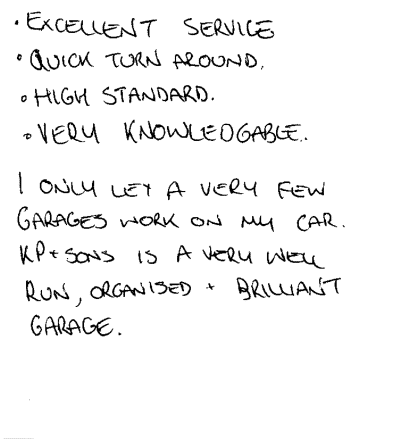 • EXCELLENT SERVICE
• QUICK TURN AROUND.
• HIGH STANDARD.
• VERY KNOWLEDGABLE..
I ONLY LET A VERY FEW
GARAGES WORK ON MY CAR.
KP + SONS IS A VERY WELL
RUN, ORGANISED + BRILLIANT
GARAGE.